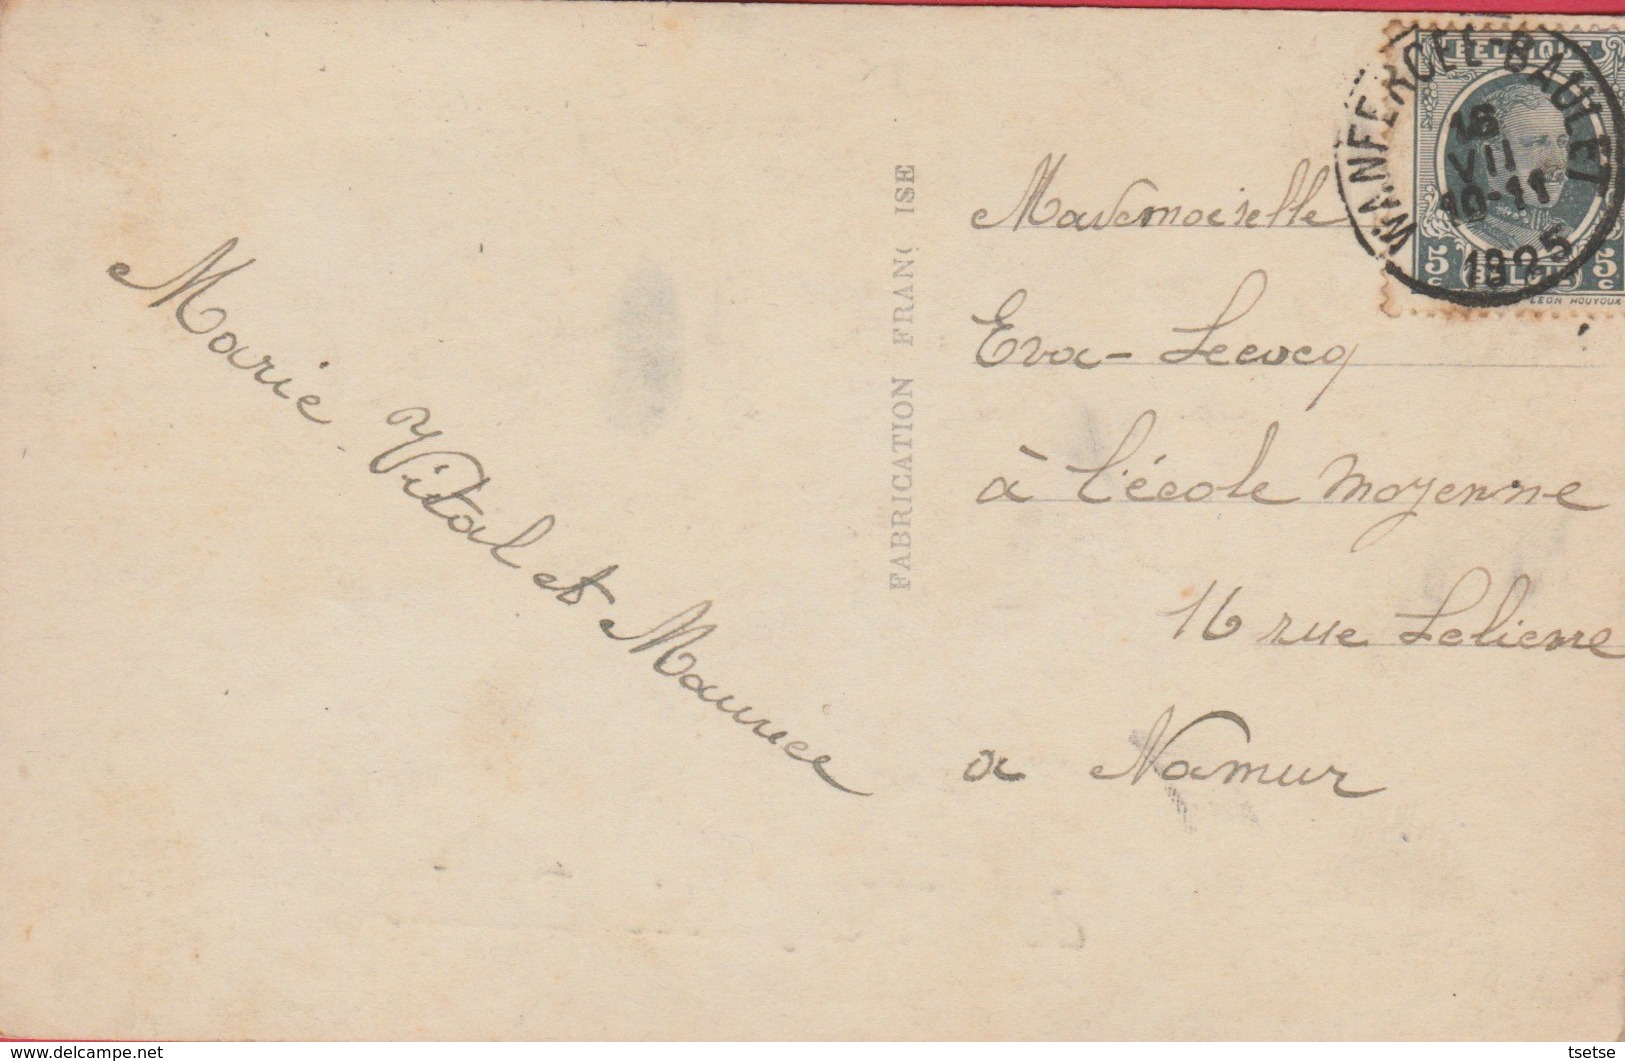 Marie Vital et Maurice
FABRICATION FRANÇAISE
Mademoiselle
Eva-Lecocq
à l'école moyenne
16 rue Lelièvre
a Namur
WANFERCEE-BAULET
16
VII
10-11
1925
BELGIQUE
5 c
BELGIE
5 c
LEON HOUYOUX
tsetse